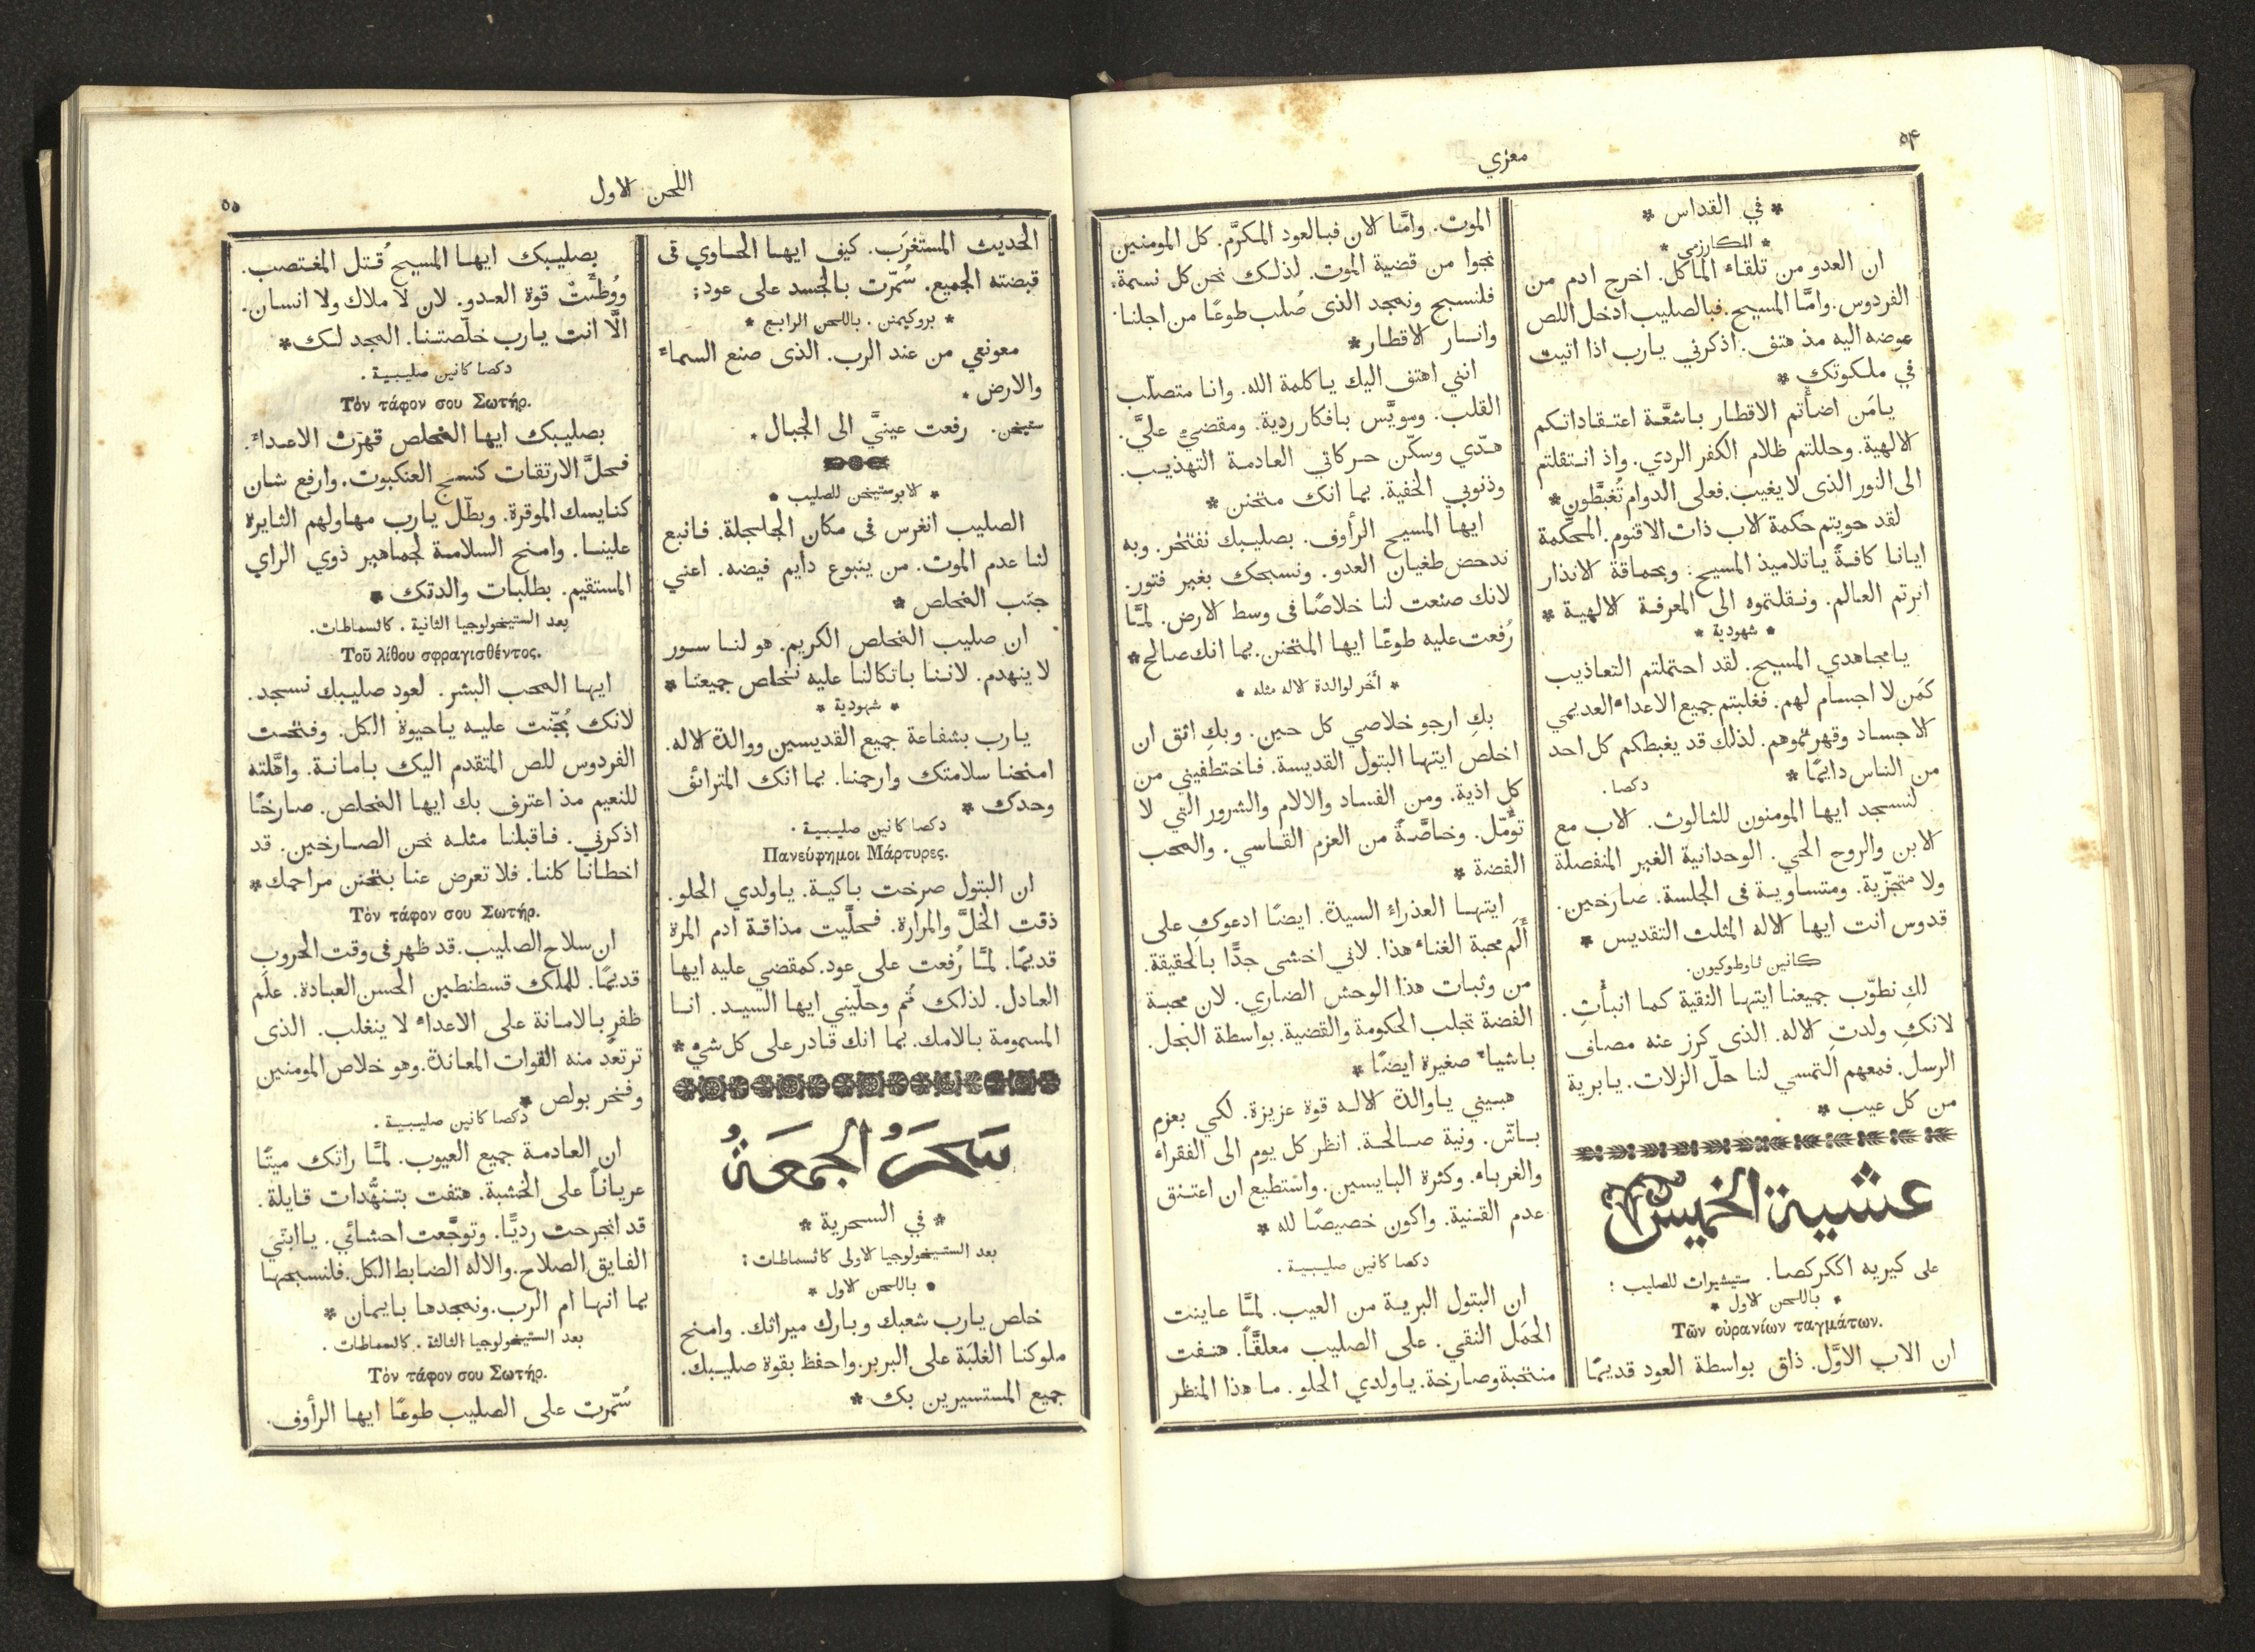 ٥٤
معزي
* في القداس *
* المكارزمي *
ان العدو من تلقاء الماكل. اخرج ادم من
الفردوس. وامَّا المسيح. فبالصليب ادخل اللص
عوضه اليه مذ هتف. اذكرني يارب اذا اتيت
في ملكوتك *
يامَن اضأتم الاقطار باشعَّة اعتقاداتكم
الالهية. وحللتم ظلام الكفر الردي. واذ انتقلتم
الى النور الذى لا يغيب. فعلى الدوام تُغبَّطون *
لقد حويتم حكمة الاب ذات الاقنوم. المحكّمة
ايانا كافةً ياتلاميذ المسيح: وبحماقة الانذار
انرتم العالم. ونقلتموه الى المعرفة الالهية *
* شهودية *
يامجاهدي المسيح. لقد احتملتم التعاذيب
كمَن لا اجسام لهم. فغلبتم جميع الاعداء العديمي
الاجساد وقهرتموهم. لذلك قد يغبطكم كل احد
من الناس دايمًا *
دكصا.
لنسجد ايها المومنون للثالوث. الاب مع
الابن والروح الحي. الوحدانية الغير المنفصلة
ولا متجزّية. ومتساوية في الجلسة. صارخين.
قدوس انت ايها الاله المثلث التقديس *
كانين ثاوطوكيون.
لكِ نطوّب جميعنا ايتها النقية كما انبأتِ.
لانكِ ولدتِ الاله. الذى كرز عنه مصاف
الرسل. فمعهم التمسي لنا حلّ الزلات. يابرية
من كل عيب *
عشية الخميس
على كيريه اككركصا. ستيشيرات للصليب:
* باللحن الاول *
Τῶν οὐρανίων ταγμάτων.
ان الاب الاوَّل. ذاق بواسطة العود قديمًا
الموت. وامَّا الان فبالعود المكرَّم. كل المومنين
نجوا من قضية الموت. لذلك نحن كل نسمة.
فلنسبح ونمجد الذى صُلب طوعًا من اجلنا.
وانار الاقطار *
انني اهتف اليك ياكلمة الله. وانا متصلّب
القلب. وسويَّس بافكار ردية. ومقضي عليَّ.
هدّي وسكّن حركاتي العادمة التهذيب.
وذنوبي الخفية. بما انك متحنن *
ايها المسيح الرأوف. بصليبك نفتخر. وبه
ندحض طغيان العدو. ونسبحك بغير فتور.
لانك صنعت لنا خلاصًا في وسط الارض. لمَّا
رُفعت عليه طوعًا ايها المتحنن. بما انك صالح *
* أُخَر لوالدة الاله مثله *
بكِ ارجو خلاصي كل حين. وبكِ اثق ان
اخلص ايتها البتول القديسة. فاختطفيني من
كل اذية. ومن الفساد والالام والشرور التي لا
تؤمَّل. وخاصَّةً من العزم القاسي. والمحب
الفضة *
ايتها العذراء السيدة. ايضًا ادعوكِ على
أَلَم محبة الغناء هذا. لاني اخشى جدًّا بالحقيقة.
من وثبات هذا الوحش الضاري. لان محبة
الفضة تجلب الحكومة والقضية. بواسطة البخل.
باشياء صغيرة ايضًا *
هبيني ياوالدة الاله قوة عزيزة. لكي بعزم
باتّ. ونية صالحة. انظر كل يوم الى الفقراء
والغرباء. وكثرة البايسين. واستطيع ان اعتنق
عدم القنية. واكون خصيصًا لله *
دكصا كانين صليبية.
ان البتول البرية من العيب. لمَّا عاينت
الحمَل النقي. على الصليب معلقًا. هتفت
منتحبة وصارخة. ياولدي الحلو. ما هذا المنظر
اللحن الاول
٥٥
الحديث المستغرَب. كيف ايها الحاوي في
قبضته الجميع. سُمّرت بالجسد على عود:
* بروكيمنن. باللحن الرابع *
معونتي من عند الرب. الذى صنع السماء
والارض.
ستيخن. رفعت عينيَّ الى الجبال.
* الابوستيخن للصليب *
الصليب انغرس في مكان الجلجلة. فانبع
لنا عدم الموت. من ينبوع دايم فيضه. اعني
جنب المخلص *
ان صليب المخلص الكريم. هو لنا سور
لا ينهدم. لاننا باتكالنا عليه نخلص جميعنا *
* شهودية *
يارب بشفاعة جميع القديسين ووالدة الاله.
امنحنا سلامتك وارحمنا. بما انك المترائف
وحدك *
دكصا كانين صليبية.
Πανεύφημοι Μάρτυρες.
ان البتول صرخت باكية. ياولدي الحلو.
ذقت الخلَّ والمرارة. فحلَّيت مذاقة ادم المرة
قديمًا. لمَّا رُفعت على عود. كمقضي عليه ايها
العادل. لذلك قُم وحلّيني ايها السيد. انا
المسمومة بالامك. بما انك قادر على كل شي *
سَحَرُ الجمعَةُ
* في السحرية *
بعد الستيخولوجيا الاولى كاثسماطات:
* باللحن الاول *
خلص يارب شعبك وبارك ميراثك. وامنح
ملوكنا الغلبَة على البربر. واحفظ بقوة صليبك.
جميع المستسيرين بك *
بصليبك ايها المسيح قُتل المغتصب.
ووُطئَتْ قوة العدو. لان لا ملاك ولا انسان.
الَّا انت يارب خلّصتنا. المجد لك *
دكصا كانين صليبية.
Τὸν τάφον σου Σωτήρ.
بصليبك ايها المخلص قهرت الاعداء.
فحلَّ الارتقات كنسج العنكبوت. وارفع شان
كنايسك الموقرة. وبطّل يارب مهاولهم الثايرة
علينا. وامنح السلامة لجماهير ذوي الراي
المستقيم. بطلبات والدتك *
بعد الستيخولوجيا الثانية. كاثسماطات.
Τοῦ λίθου σφραγισθέντος.
ايها المحب البشر. لعود صليبك نسجد.
لانك سُمّرت عليه ياحيوة الكل. وفتحت
الفردوس للص المتقدم اليك بامانة. واهَّلته
للنعيم مذ اعترف بك ايها المخلص. صارخًا
اذكرني. فاقبلنا مثله نحن الصارخين. قد
اخطانا كلنا. فلا تعرض عنا بتحنن مراحمك *
Τὸν τάφον σου Σωτήρ.
ان سلاح الصليب. قد ظهر في وقت الحروب
قديمًا. للملك قسطنطين الحسن العبادة. علَم
ظفر بالامانة على الاعداء لا ينغلب. الذى
ترتعد منه القوات المعاندة. وهو خلاص المومنين
وفخر بولص *
دكصا كانين صليبية.
ان العادمة جميع العيوب. لمَّا راتك ميتًا
عرياناً على الخشبة. هتفت بتنهُّدات قايلة.
قد انجرحت رديًّا. وتوجَّعت احشائي. ياابني
الفايق الصلاح. والاله الضابط الكل. فلنسبحها
بما انها ام الرب. ونمجدها بايمان *
بعد الستيخولوجيا الثالثة. كاثسماطات.
Τὸν τάφον σου Σωτήρ.
سُمّرت على الصليب طوعًا ايها الرأوف.